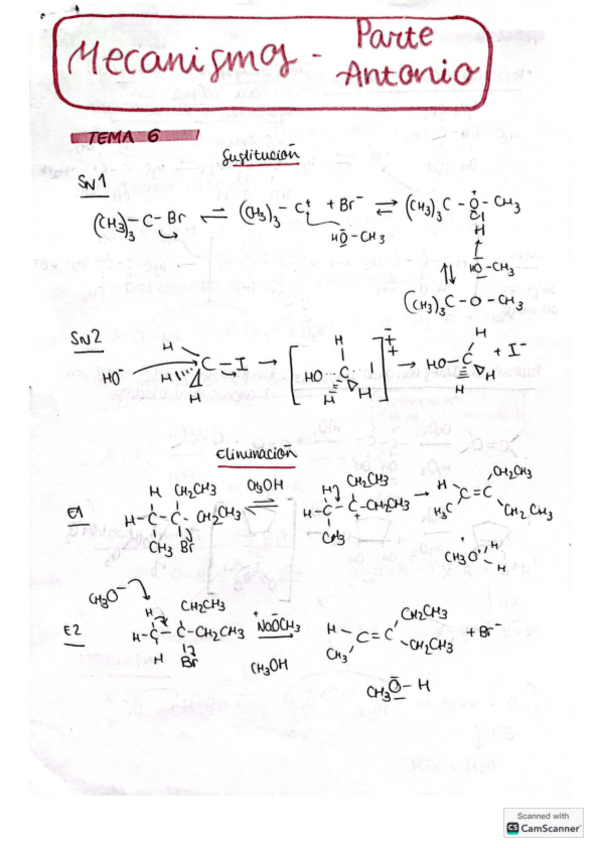 Mecanismos - Parte Antonio
TEMA 6
Sustitución
SN1
(CH3)3-C-Br ⇌ (CH3)3-C+ + Br- ⇌ (CH3)3C-O+-CH3
H
HO-CH3
HO-CH3
(CH3)3C-O-CH3
SN2
HO-
H
H
C-I → [HO C I]‡ → HO-C + I-
H
H
H
H
H
H
H
Eliminación
E1
H CH2CH3
H-C-C-CH2CH3
CH3 Br
CH3OH
H CH2CH3
H-C-C-CH2CH3
CH3
H
H3C
C=C
CH2CH3
CH2CH3
+
CH3O+
H
H
E2
CH3O-
H CH2CH3
H-C-C-CH2CH3
H Br
NaOCH3
CH3OH
H
CH3
C=C
CH2CH3
CH2CH3
+ Br-
CH3O-H
Scanned with
CS CamScanner